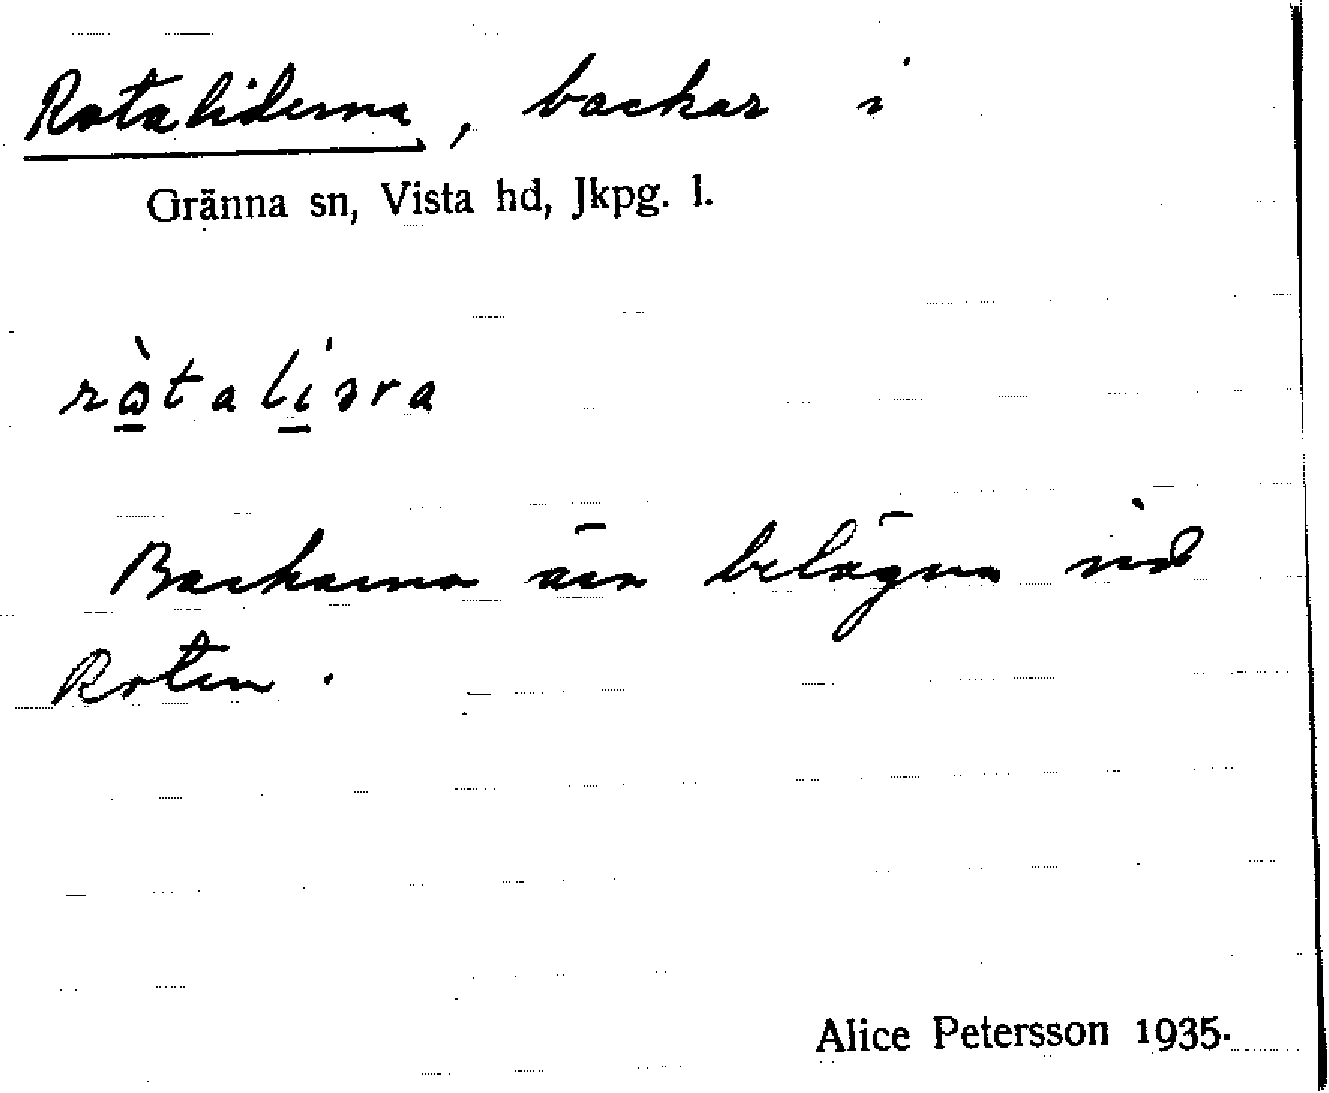 Rotaliderna, backar i
Gränna sn, Vista hd, Jkpg. l.
ròtalíəra
Backarna äro belägna vid
Roten.
Alice Petersson 1935.